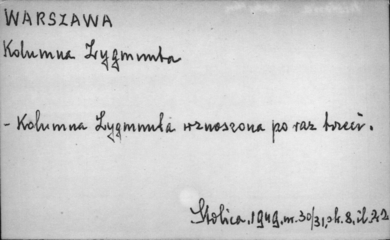 WARSZAWA
Kolumna Zygmunta
- Kolumna Zygmunta wznoszona po raz trzeci.
Stolica, 1949, nr. 30/31, str. 8, il. 22